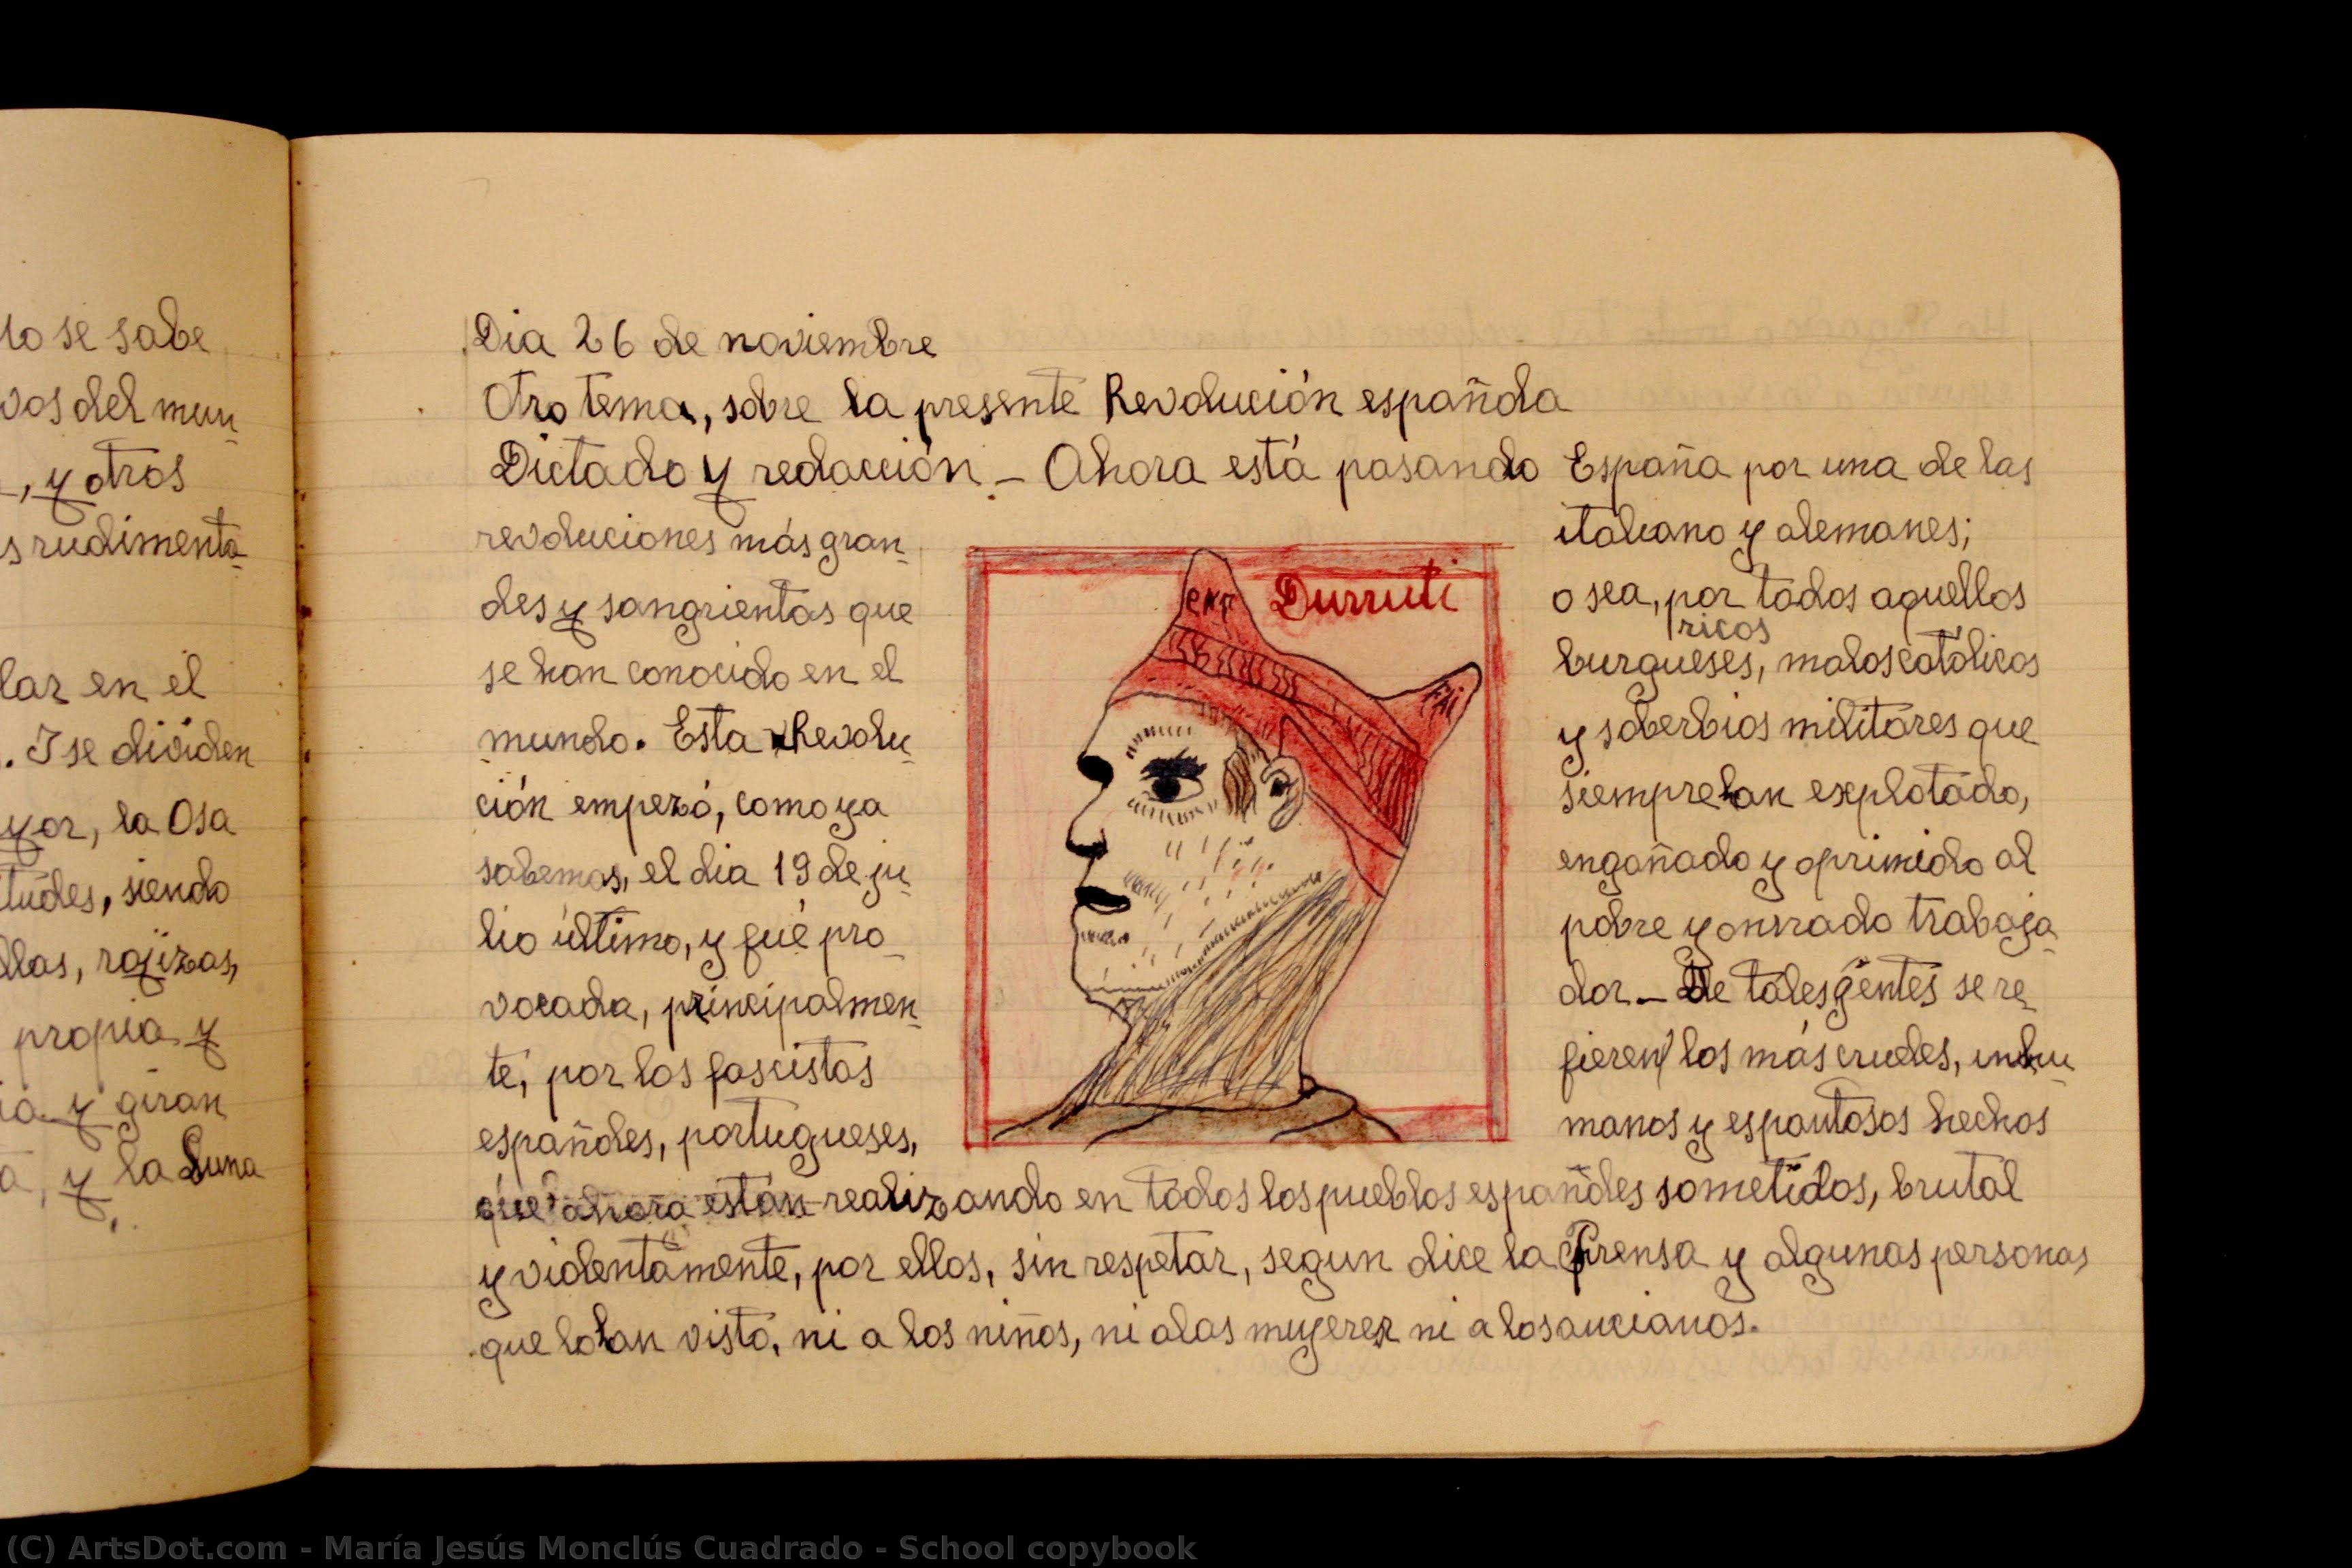 lo se sabe
vos del mun-
, y otros
s rudimenta-
lar en el
. I se dividen
yor, la Osa
tudes, siendo
llas, rojizas,
propia y
ia y giran
a, y la Luna
Dia 26 de noviembre
Otro tema, sobre la presente Revolución española
Dictado y redacción.- Ahora está pasando España por una de las
revoluciones más gran-
des y sangrientas que
se han conocido en el
mundo. Esta Revolu-
ción empezó, como ya
sabemos, el dia 19 de ju-
lio último, y fué pro-
vocada, principalmen-
te, por los fascistas
españoles, portugueses,
Durruti
CNT
FAI
italiano y alemanes;
o sea, por todos aquellos
ricos
burgueses, malos católicos
y soberbios militares que
siempre han explotado,
engañado y oprimido al
pobre y onrrado trabaja-
dor.- De tales gentes se re-
fieren los más crueles, inhu-
manos y espantosos hechos
que ahora están realizando en todos los pueblos españoles sometidos, brutal
y violentamente, por ellos, sin respetar, segun dice la Prensa y algunas personas
que lo han visto, ni a los niños, ni a las mujeres ni a los ancianos.
(C) ArtsDot.com - María Jesús Monclús Cuadrado - School copybook